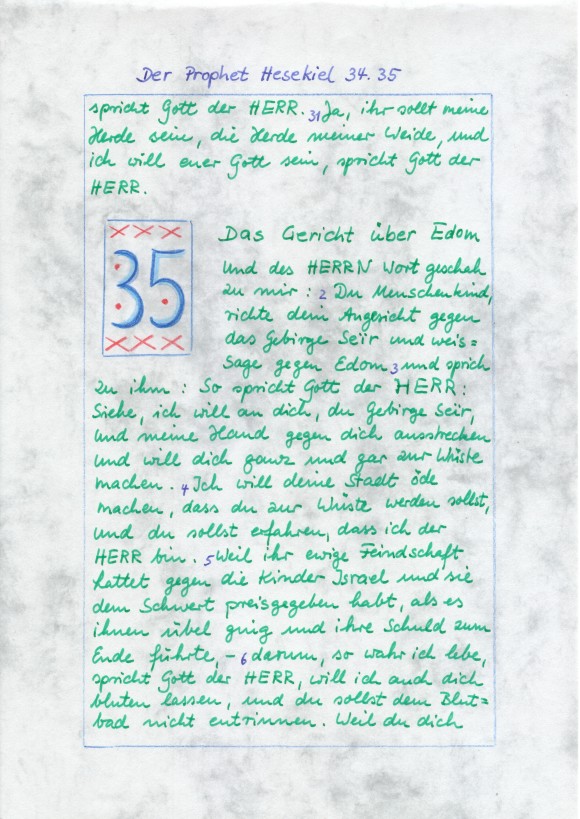 Der Prophet Hesekiel 34.35
spricht Gott der HERR. 31 Ja, ihr sollt meine
Herde sein, die Herde meiner Weide, und
ich will euer Gott sein, spricht Gott der
HERR.
35
Das Gericht über Edom
Und des HERRN Wort geschah
zu mir: 2 Du Menschenkind,
richte dein Angesicht gegen
das Gebirge Seïr und weis=
sage gegen Edom 3 und sprich
zu ihm: So spricht Gott der HERR:
Siehe, ich will an dich, du Gebirge Seïr,
und meine Hand gegen dich ausstrecken
und will dich ganz und gar zur Wüste
machen. 4 Ich will deine Stadt öde
machen, dass du zur Wüste werden sollst,
und du sollst erfahren, dass ich der
HERR bin. 5 Weil ihr ewige Feindschaft
hattet gegen die Kinder Israel und sie
dem Schwert preisgegeben habt, als es
ihnen übel ging und ihre Schuld zum
Ende führte, – 6 darum, so wahr ich lebe,
spricht Gott der HERR, will ich auch dich
bluten lassen, und du sollst dem Blut=
bad nicht entrinnen. Weil du dich